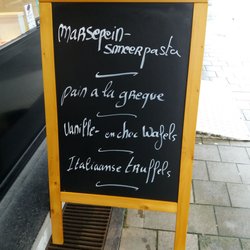 Marsepein-
smeerpasta
pain a la greque
Vanille- en choc wafels
Italiaanse truffels